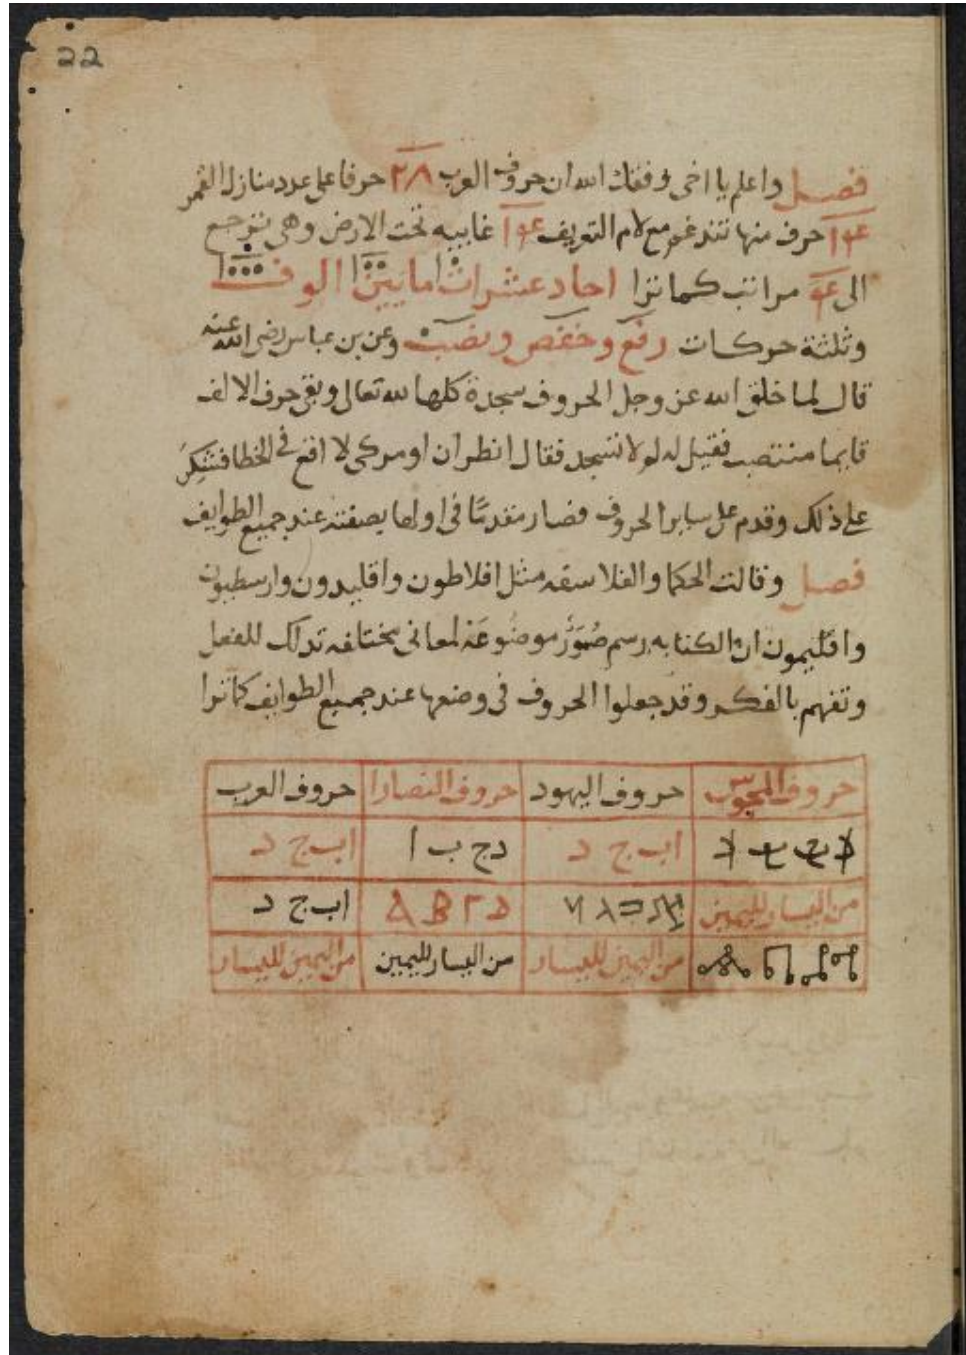 22
فصل واعلم يا اخى وفقك الله ان حروف العرب ٢٨ حرفا على عدد منازل القمر
١٤ حرف منها تندغم مع لام التعريف ١٤ غايبه تحت الارض وهى ترجع
الى ٤ مراتب كما ترا احاد عشرات امايين الوف
وثلثة حركات رفع وخفص ونصب وعن بن عباس رضى الله عنه
قال لما خلق الله عز وجل الحروف سجدة كلها لله تعالى وبقى حرف الالف
قايما منتصب فقيل له لو لا تسجد فقال انظر ان اومركى لا اقع فى الخطا فشكر
على ذلك وقدم على ساير الحروف فصار مقدمًا فى اولها بصفته عند جميع الطوايف
فصل وقالت الحكما والفلاسفه مثل افلاطون واقليدون وارسطيون
واقليمون ان الكتابه رسم صُوَرٌ موضُوعَة لمعانى مختلفه تدلك للفعل
وتفهم بالفكر وقد جعلوا الحروف فى وضعها عند جميع الطوايف كما ترا
حروف المجوس حروف اليهود حروف النصارا حروف العرب
ا ب ج د د ج ب ا ا ب ج د
من اليسار لليمين Δ B Γ D ا ب ج د
من اليمين لليسار من اليسار لليمين من اليمين لليسار